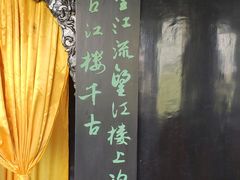 江流望江楼上
江楼千古